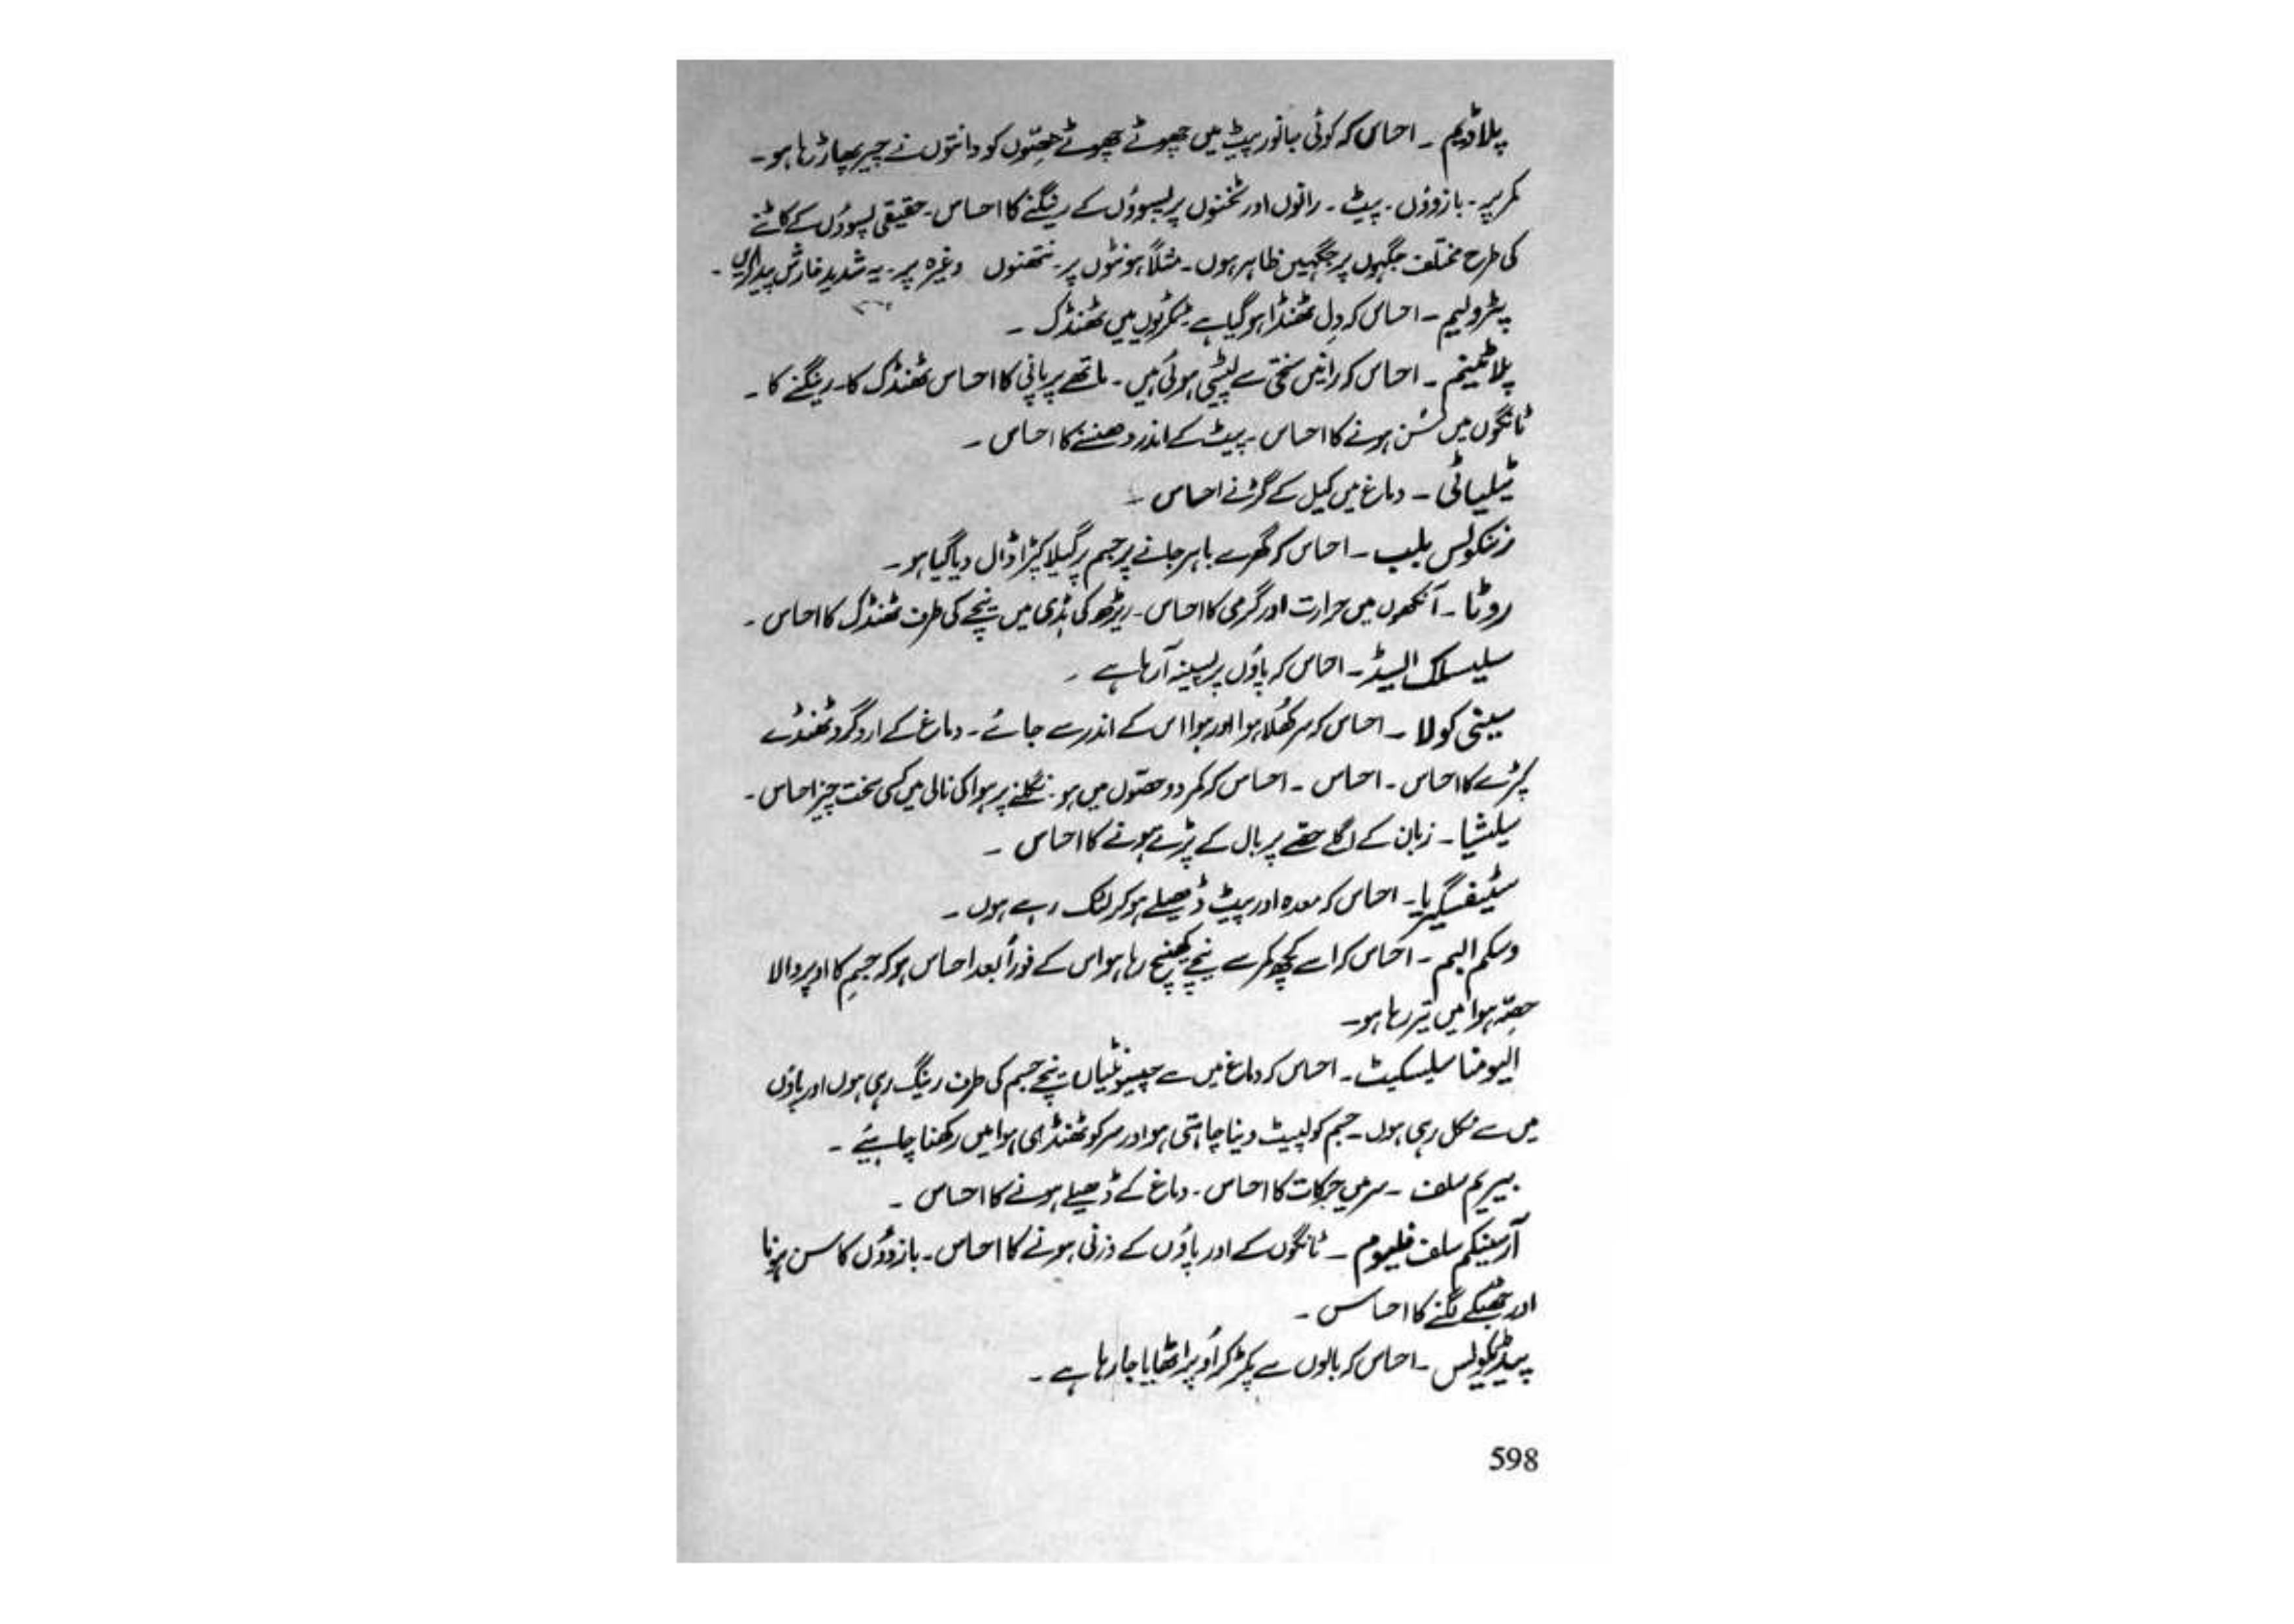 پلاڈیم ۔ احساس کہ کوئی جانور پیٹ میں چھوٹے چھوٹے حصّوں کو دانتوں نے چیر پھاڑ رہا ہو۔
کمر پر ۔ بازوؤں ۔ پیٹ ۔ رانوں اور ٹخنوں پر پسوؤں کے رینگنے کا احساس ۔ حقیقی پسوؤں کے کاٹنے
کی طرح مختلف جگہوں پر جگہیں ظاہر ہوں ۔ مثلاً ہونٹوں پر ۔ نتھنوں وغیرہ پر ۔ یہ شدید خارش پیدا کریں ۔
پٹرولیم ۔ احساس کہ دِل ٹھنڈا ہو گیا ہے میں ٹھنڈک ۔
پلاٹینم ۔ احساس کہ رانیں سختی سے لپٹی ہوئی ہیں ۔ ماتھے پر پانی کا احساس ٹھنڈک کا ۔ رینگنے کا ۔
ٹانگوں میں سُن ہونے کا احساس ۔ پیٹ کے اندر دھنسنے کا احساس ۔
ٹیلیائی ۔ دماغ میں کیل کے گڑنے احساس ۔
رننکولس بلب ۔ احساس کہ گھر سے باہر جانے پر جسم پر گیلا کپڑا ڈال دیا گیا ہو ۔
روٹا ۔ آنکھوں میں حرارت اور گرمی کا احساس ۔ ریڑھ کی ہڈی میں نیچے کی طرف ٹھنڈک کا احساس ۔
سلیسلک ایسڈ ۔ احساس کہ پاؤں پر پسینہ آ رہا ہے ۔
سینی کولا ۔ احساس کہ سر کھُلا ہوا اور ہوا اس کے اندر سے جائے ۔ دماغ کے ارد گرد ٹھنڈے
کپڑے کا احساس ۔ احساس ۔ احساس کہ کمر دو حصّوں میں ہو ۔ نگلنے پر ہوا کی نالی میں کسی سخت چیز احساس ۔
سلیشیا ۔ زبان کے اگلے حصّے پر بال کے پڑے ہونے کا احساس ۔
سٹیفسیگیریا ۔ احساس کہ معدہ اور پیٹ ڈھیلے ہو کر لٹک رہے ہوں ۔
وسکم البم ۔ احساس کہ اسے کچھ کمر سے نیچے کھینچ رہا ہو اس کے فوراً بعد احساس ہو کہ جسم کا اوپر والا
حصّہ ہوا میں تیر رہا ہو ۔
الیومنا سلیسکیٹ ۔ احساس کہ دماغ میں سے چیونٹیاں نیچے جسم کی طرف رینگ رہی ہوں اور پاؤں
میں سے نکل رہی ہوں ۔ جسم کو لپیٹ دینا چاہتی ہو اور سر کو ٹھنڈی ہوا میں رکھنا چاہیئے ۔
بیریم سلف ۔ سر میں حرکات کا احساس ۔ دماغ کے ڈھیلے ہونے کا احساس ۔
آرسینکم سلف فلیوم ۔ ٹانگوں کے اور پاؤں کے وزنی ہونے کا احساس ۔ بازوؤں کا سن ہونا
اور جھٹکے لگنے کا احساس ۔
پیڈیکولس ۔ احساس کہ بالوں سے پکڑ کر اُوپر اٹھایا جا رہا ہے ۔
598